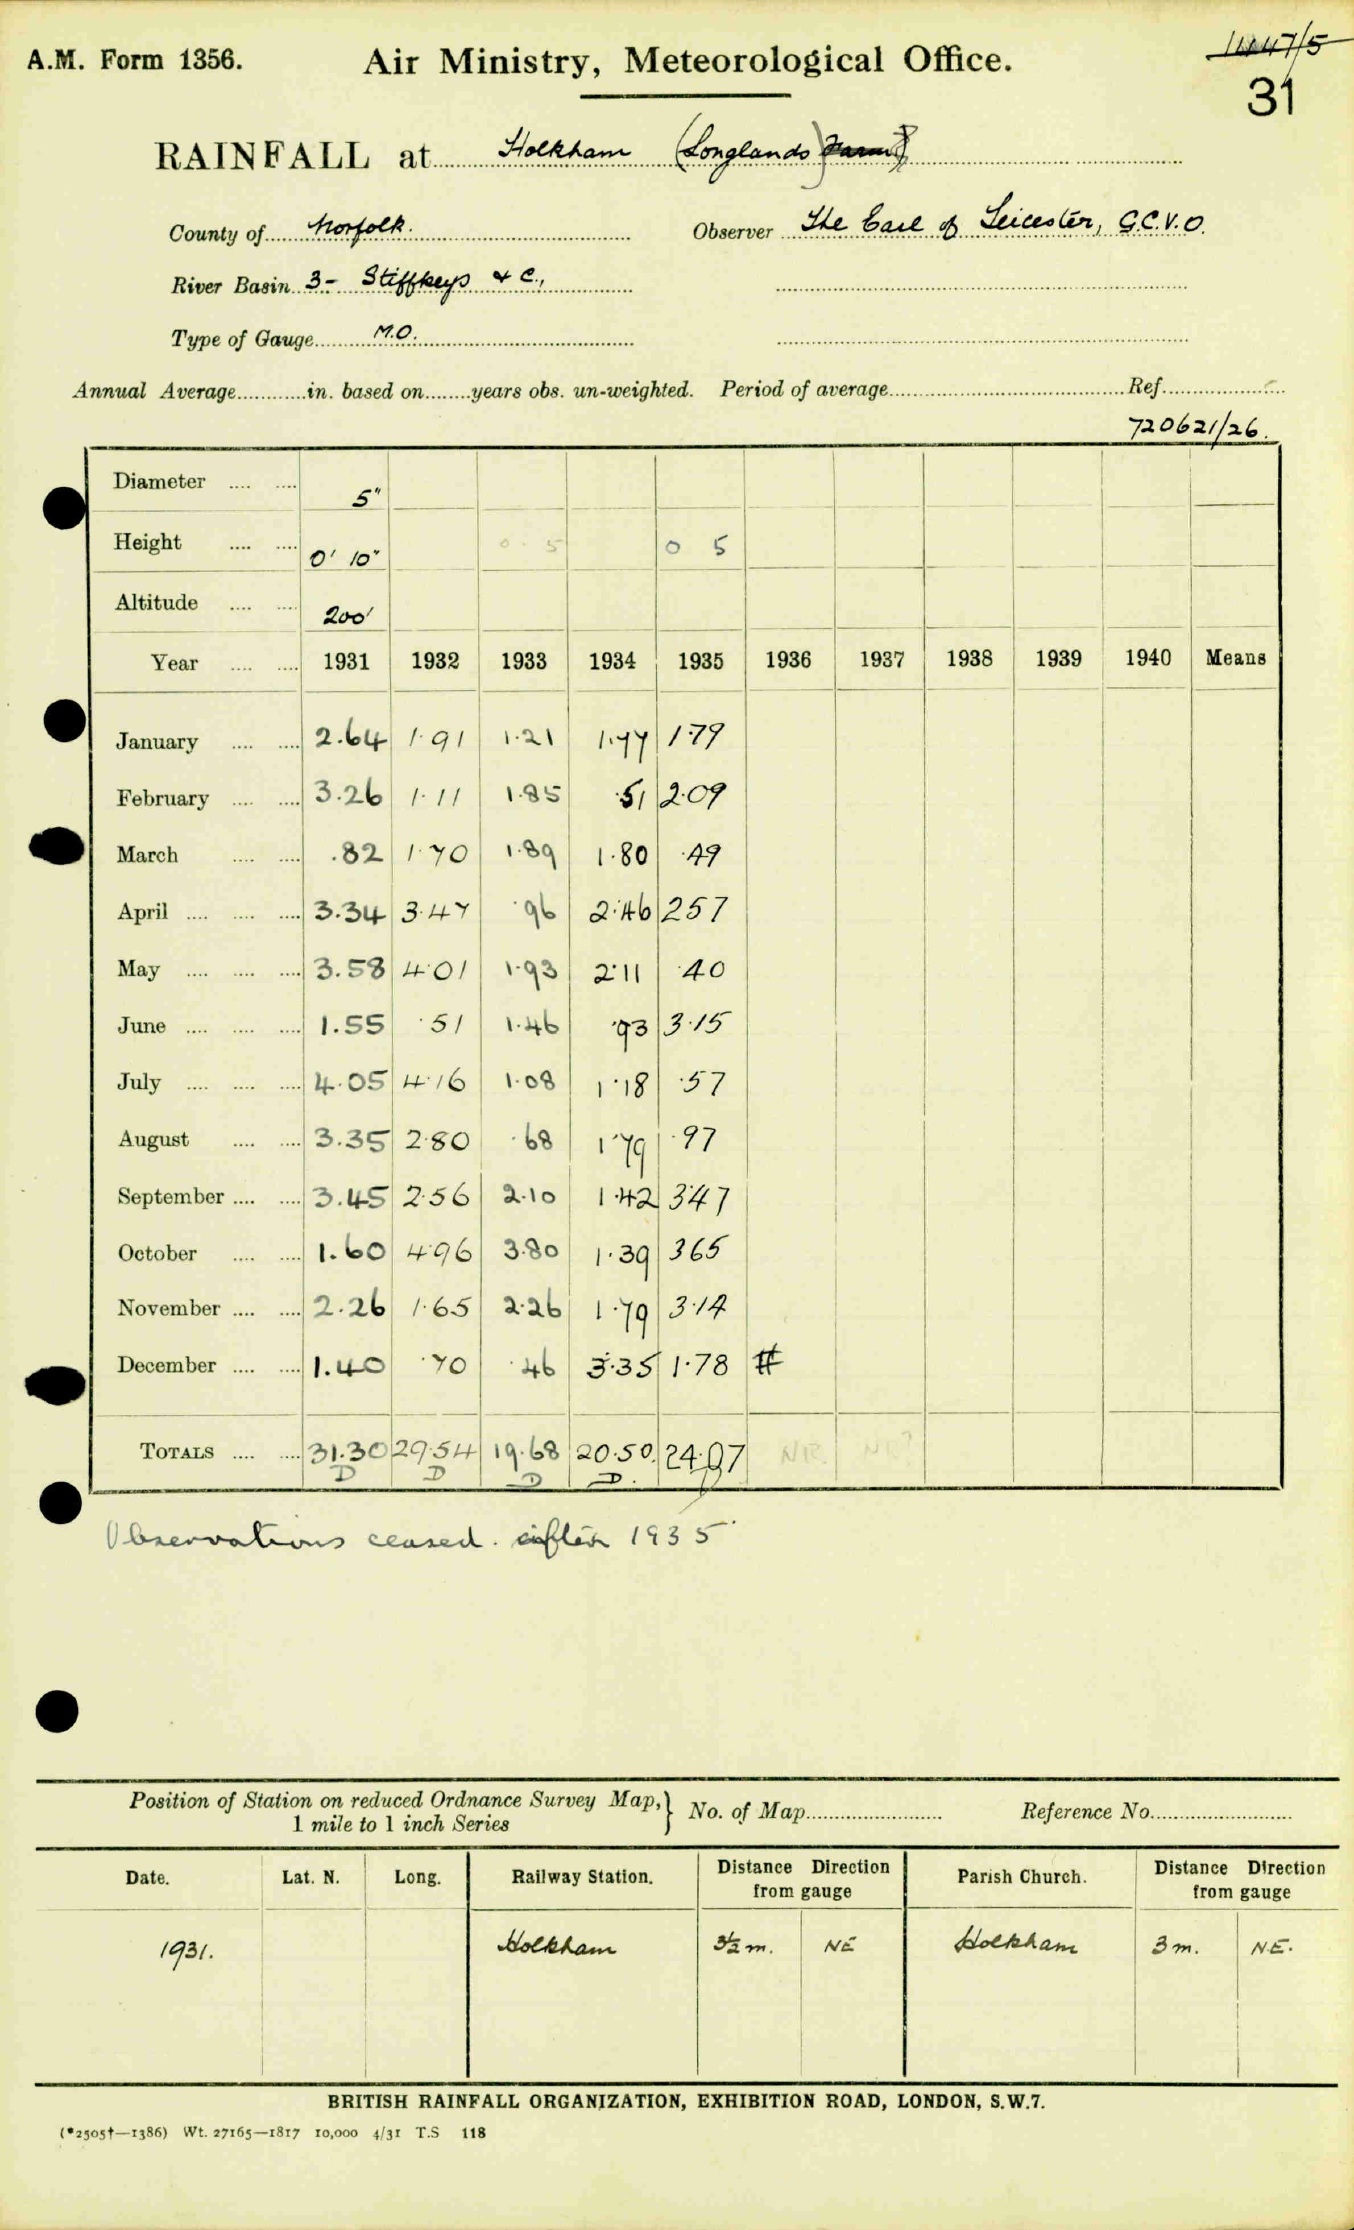 A.M. Form 1356.
Air Ministry, Meteorological Office.
31
RAINFALL at Holkham (Longlands) Farm
County of Norfolk.
Observer The Earl of Leicester, G.C.V.O.
River Basin 3- Stiffkeys & C.,
Type of Gauge M.O.
Annual Average in. based on years obs. un-weighted. Period of average Ref.
720621/26.
Diameter 5"
Height 0' 10" 0 5 0 5
Altitude 200'
Year 1931 1932 1933 1934 1935 1936 1937 1938 1939 1940 Means
January 2.64 1.91 1.21 1.77 1.79
February 3.26 1.11 1.85 .51 2.09
March .82 1.70 1.89 1.80 .49
April 3.34 3.47 .96 2.46 2.57
May 3.58 4.01 1.93 2.11 .40
June 1.55 .51 1.46 .93 3.15
July 4.05 4.16 1.08 1.18 .57
August 3.35 2.80 .68 1.79 .97
September 3.45 2.56 2.10 1.42 3.47
October 1.60 4.96 3.80 1.39 3.65
November 2.26 1.65 2.26 1.79 3.14
December 1.40 .70 .46 3.35 1.78 #
TOTALS 31.30 29.54 19.68 20.50 24.07 NR. NR?
D D D D.
Observations ceased. after 1935
Position of Station on reduced Ordnance Survey Map,
1 mile to 1 inch Series
No. of Map Reference No.
Date. Lat. N. Long. Railway Station. Distance Direction from gauge Parish Church. Distance Direction from gauge
1931. Holkham 3½ m. NE Holkham 3 m. N.E.
BRITISH RAINFALL ORGANIZATION, EXHIBITION ROAD, LONDON, S.W.7.
(*2505†—1386) Wt. 27165—1817 10,000 4/31 T.S 118